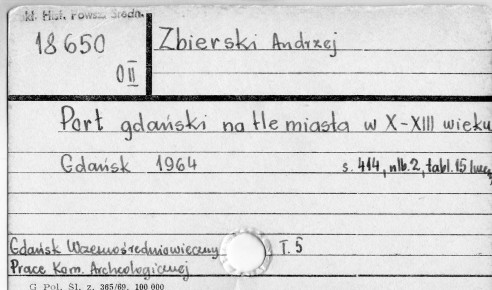 kl. Hist. Powsz. Średn.
18 650
O II
Zbierski Andrzej
Port gdański na tle miasta w X-XIII wieku
Gdańsk 1964 s. 414, nlb. 2, tabl. 15
Gdańsk Wczesnośredniowieczny T. 5
Prace Kom. Archeologicznej
G Pol. Śl. z. 365/69. 100 000